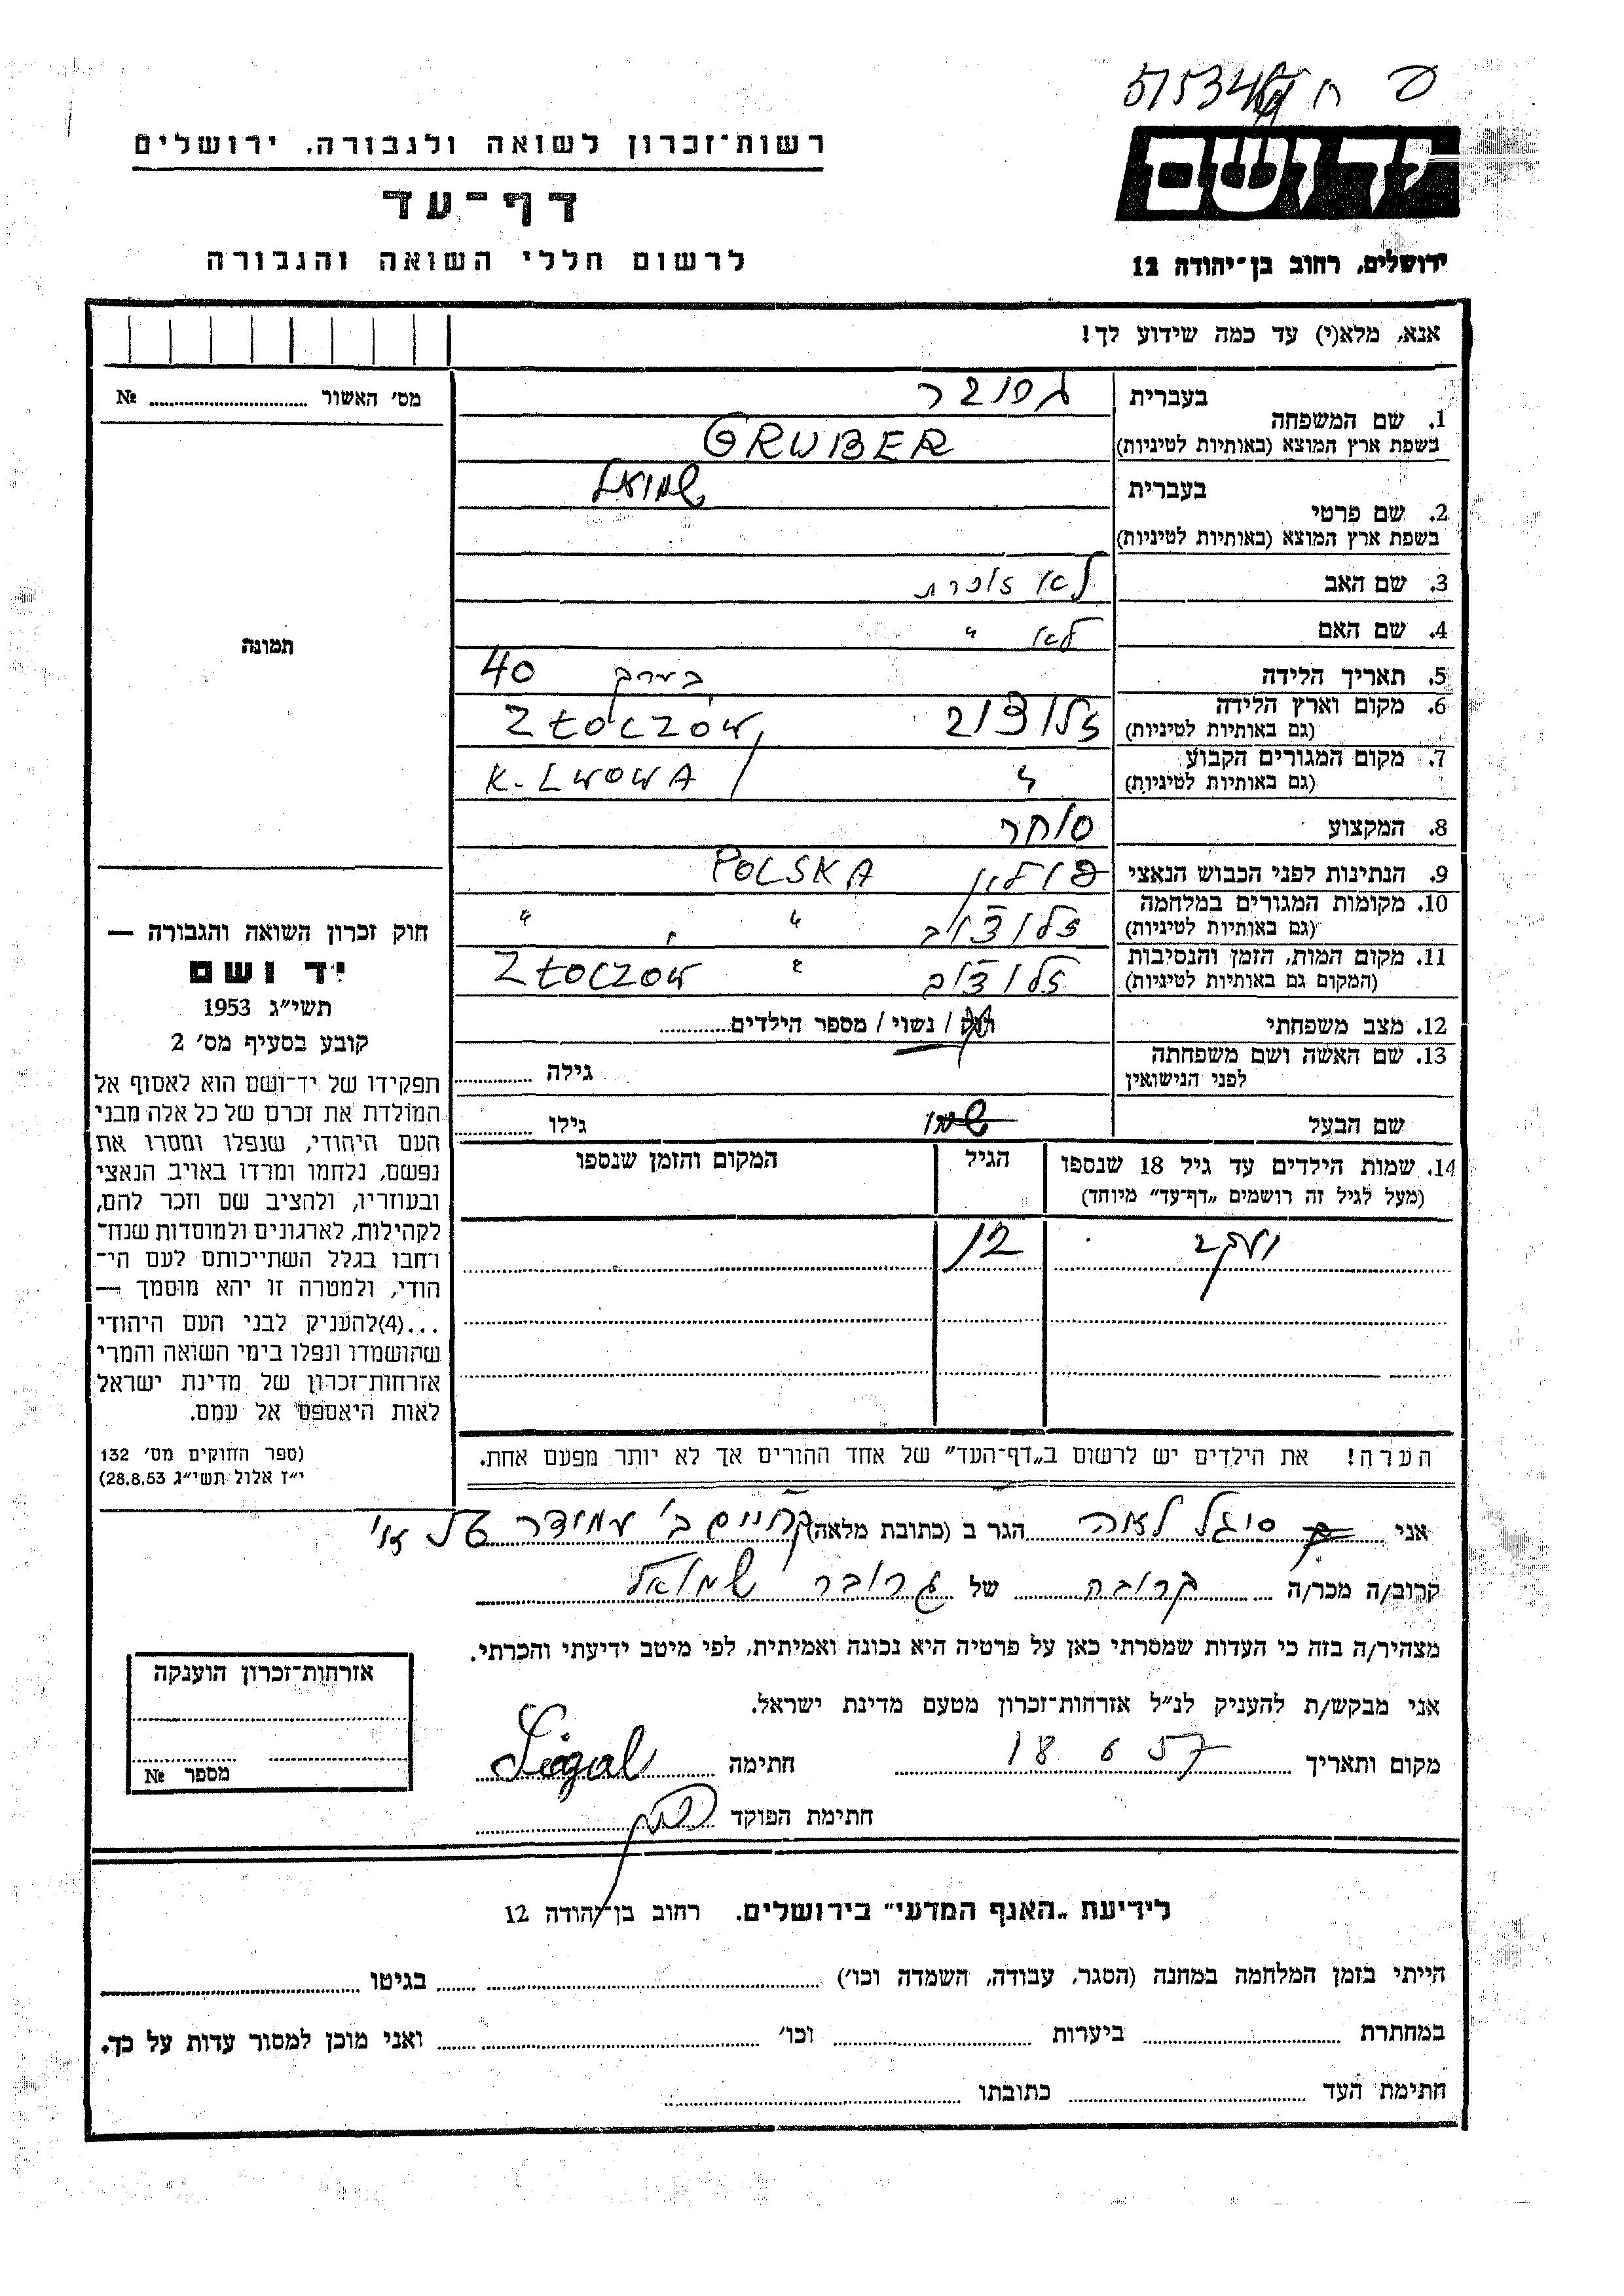 רשות־זכרון לשואה ולגבורה. ירושלים
דף־עד
לרשום חללי השואה והגבורה
יד ושם
ירושלים, רחוב בן־יהודה 12
אנא, מלא(י) עד כמה שידוע לך!
מס׳ האשור № 
תמונה
1. שם המשפחה בעברית גרובר
בשפת ארץ המוצא (באותיות לטיניות) GRUBER
2. שם פרטי בעברית שמואל
בשפת ארץ המוצא (באותיות לטיניות)
3. שם האב לא זוכרת
4. שם האם לא "
5. תאריך הלידה בערך 40
6. מקום וארץ הלידה זלוצ׳וב Złoczów,
(גם באותיות לטיניות)
7. מקום המגורים הקבוע " K. LWOWA
(גם באותיות לטיניות)
8. המקצוע סוחר
9. הנתינות לפני הכבוש הנאצי פולין POLSKA
10. מקומות המגורים במלחמה זלוצ׳וב " " "
(גם באותיות לטיניות)
11. מקום המות, הזמן והנסיבות זלוצ׳וב " Złoczów
(המקום גם באותיות לטיניות)
12. מצב משפחתי רווק / נשוי / מספר הילדים
13. שם האשה ושם משפחתה גילה
לפני הנישואין
שם הבעל גילו
14. שמות הילדים עד גיל 18 שנספו הגיל המקום והזמן שנספו
(מעל לגיל זה רושמים „דף־עד״ מיוחד)
יעקב 12
הערה! את הילדים יש לרשום ב„דף־העד״ של אחד ההורים אך לא יותר מפעם אחת.
חוק זכרון השואה והגבורה —
יד ושם
תשי״ג 1953
קובע בסעיף מס׳ 2
תפקידו של יד־ושם הוא לאסוף אל
המולדת את זכרם של כל אלה מבני
העם היהודי, שנפלו ומסרו את
נפשם, נלחמו ומרדו באויב הנאצי
ובעוזריו, ולהציב שם וזכר להם,
לקהילות, לארגונים ולמוסדות שנח־
רחבו בגלל השתייכותם לעם הי־
הודי, ולמטרה זו יהא מוסמך —
...(4)להעניק לבני העם היהודי
שהושמדו ונפלו בימי השואה והמרי
אזרחות־זכרון של מדינת ישראל
לאות היאספם אל עמם.
(ספר החוקים מס׳ 132
י״ז אלול תשי״ג 28.8.53)
אני סיגל לאה הגר ב (כתובת מלאה) ק חיים ב׳ עמידר
קרוב/ה מכר/ה קרובה של גרובר שמואל
מצהיר/ה בזה כי העדות שמסרתי כאן על פרטיה היא נכונה ואמיתית, לפי מיטב ידיעתי והכרתי.
אני מבקש/ת להעניק לנ״ל אזרחות־זכרון מטעם מדינת ישראל.
מקום ותאריך 18 6 57 חתימה Sigal
חתימת הפוקד
אזרחות־זכרון הוענקה
מספר №
לידיעת „האגף המדעי״ בירושלים. רחוב בן־יהודה 12
הייתי בזמן המלחמה במחנה (הסגר, עבודה, השמדה וכו׳) בגיטו
במחתרת ביערות וכו׳ ואני מוכן למסור עדות על כך.
חתימת העד כתובתו